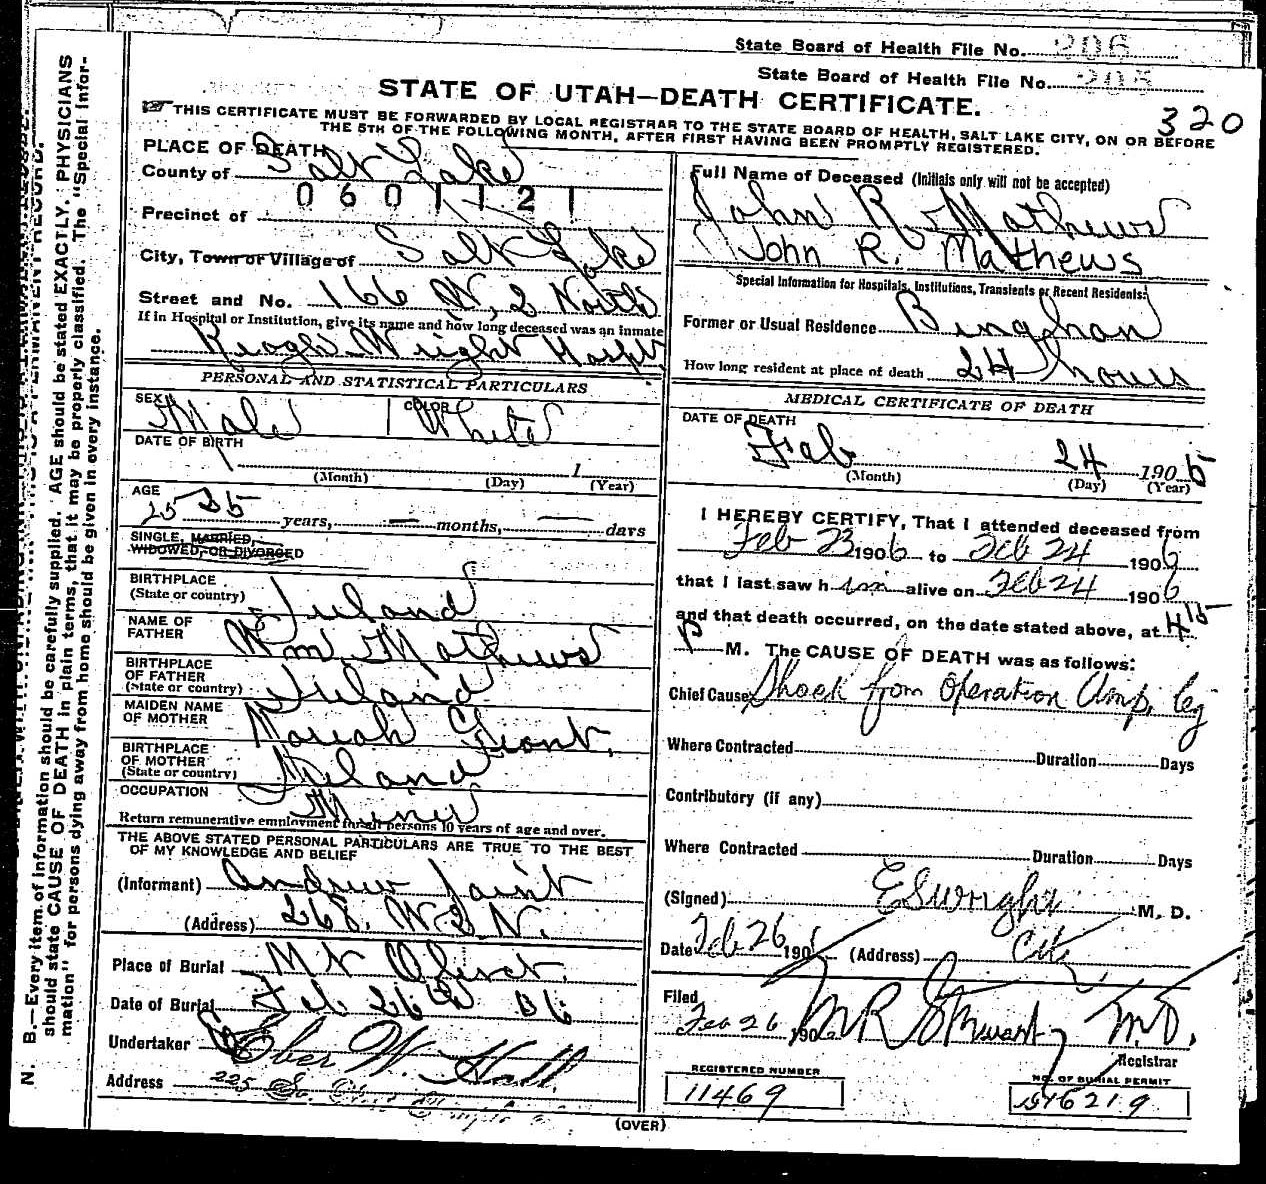 State Board of Health File No. 206
State Board of Health File No. 205
STATE OF UTAH—DEATH CERTIFICATE.
320
THIS CERTIFICATE MUST BE FORWARDED BY LOCAL REGISTRAR TO THE STATE BOARD OF HEALTH, SALT LAKE CITY, ON OR BEFORE
THE 5TH OF THE FOLLOWING MONTH, AFTER FIRST HAVING BEEN PROMPTLY REGISTERED.
PLACE OF DEATH
County of Salt Lake
0601121
Precinct of
City, Town or Village of Salt Lake
Street and No. 166 W, 2 North
If in Hospital or Institution, give its name and how long deceased was an inmate
Keogh Wright Hospt
PERSONAL AND STATISTICAL PARTICULARS
SEX Male COLOR White
DATE OF BIRTH
1
(Month) (Day) (Year)
AGE
25 35 years, — months, — days
SINGLE, MARRIED,
WIDOWED, OR DIVORCED
BIRTHPLACE
(State or country) Ireland
NAME OF
FATHER Wm. Mathews
BIRTHPLACE
OF FATHER
(State or country) Ireland
MAIDEN NAME
OF MOTHER Moriah
BIRTHPLACE
OF MOTHER
(State or country) Ireland
OCCUPATION Miner
Return remunerative employment for all persons 10 years of age and over.
THE ABOVE STATED PERSONAL PARTICULARS ARE TRUE TO THE BEST
OF MY KNOWLEDGE AND BELIEF
(Informant) Andrew Jaint
(Address) 268. W 2 N.
Place of Burial Mt Olivet.
Date of Burial Feb 26 06
Undertaker Eber W. Hall
Address 225 So.
Full Name of Deceased (Initials only will not be accepted)
John R. Mathews
John R. Mathews
Special Information for Hospitals, Institutions, Transients or Recent Residents:
Former or Usual Residence Bingham
How long resident at place of death 24 hours
MEDICAL CERTIFICATE OF DEATH
DATE OF DEATH
Feb 24 1906
(Month) (Day) (Year)
I HEREBY CERTIFY, That I attended deceased from
Feb 23 1906 to Feb 24 1906
that I last saw him alive on Feb 24 1906
and that death occurred, on the date stated above, at 4 15
P M. The CAUSE OF DEATH was as follows:
Chief Cause Shock from Operation Amp. leg
Where Contracted Duration Days
Contributory (if any)
Where Contracted Duration Days
(Signed) ES Wright M. D.
Date Feb 26 190 (Address) City
Filed
Feb 26 1906 M R Stewart M.D.
Registrar
REGISTERED NUMBER
11469
NO. OF BURIAL PERMIT
16219
(OVER)
N. B.—Every item of information should be carefully supplied. AGE should be stated EXACTLY. PHYSICIANS
should state CAUSE OF DEATH in plain terms, that it may be properly classified. The "Special Infor-
mation" for persons dying away from home should be given in every instance.